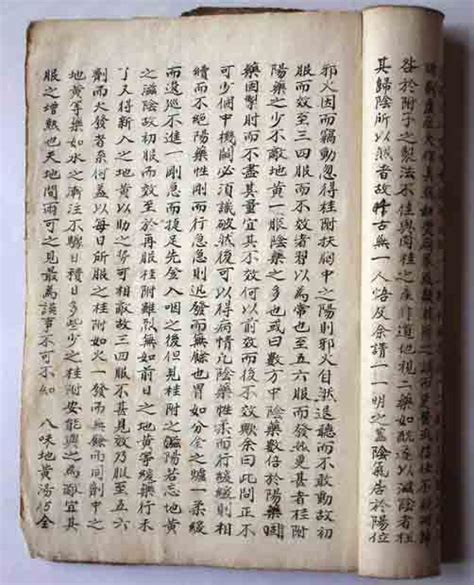 咎於附子之製法不佳與肉桂之產非道地視二藥如酖遂以滋陰者桂
其歸陰所以越者故終古無一人悟及余請一一明之蓋陰氣居於陽位
邪火因而竊動忽得桂附扶胸中之陽則邪火自然退聽而不敢動故初
服而效至三四服而不效者習以為常也至五六服而發熱更甚者桂附
陽藥之少不敵地黃一服陰藥之多也或曰數方中陰藥數倍於陽藥固
藥固掣肘而不盡其量宜其不效何以前效而後不效歟余曰此間正不
可少個中機關必須識破然後可以得病情凡陰藥性柔而行緩緩則相
續而不絕陽藥性剛而行急急則迅發而無餘也胃如分金之爐一柔緩
而逡巡不進一剛急而捷足先金入咽之後但見桂附之溫陽若忘地黃
之滋陰故初服而效至於再服桂附雖飄無如前日之地黃等緩藥行未
了又得新入之地黃以助之勢可相敵故三四服不甚見效乃服至五六
劑而大發者系何蓋以每日所服之桂附如火一發而無餘而同劑中之
地黃等藥如水之漸注不驟日積日多些少之桂附安能與之為敵宜其
服之增熱也天地間兩可之見最為誤事不可不知 八味地黃湯巧全